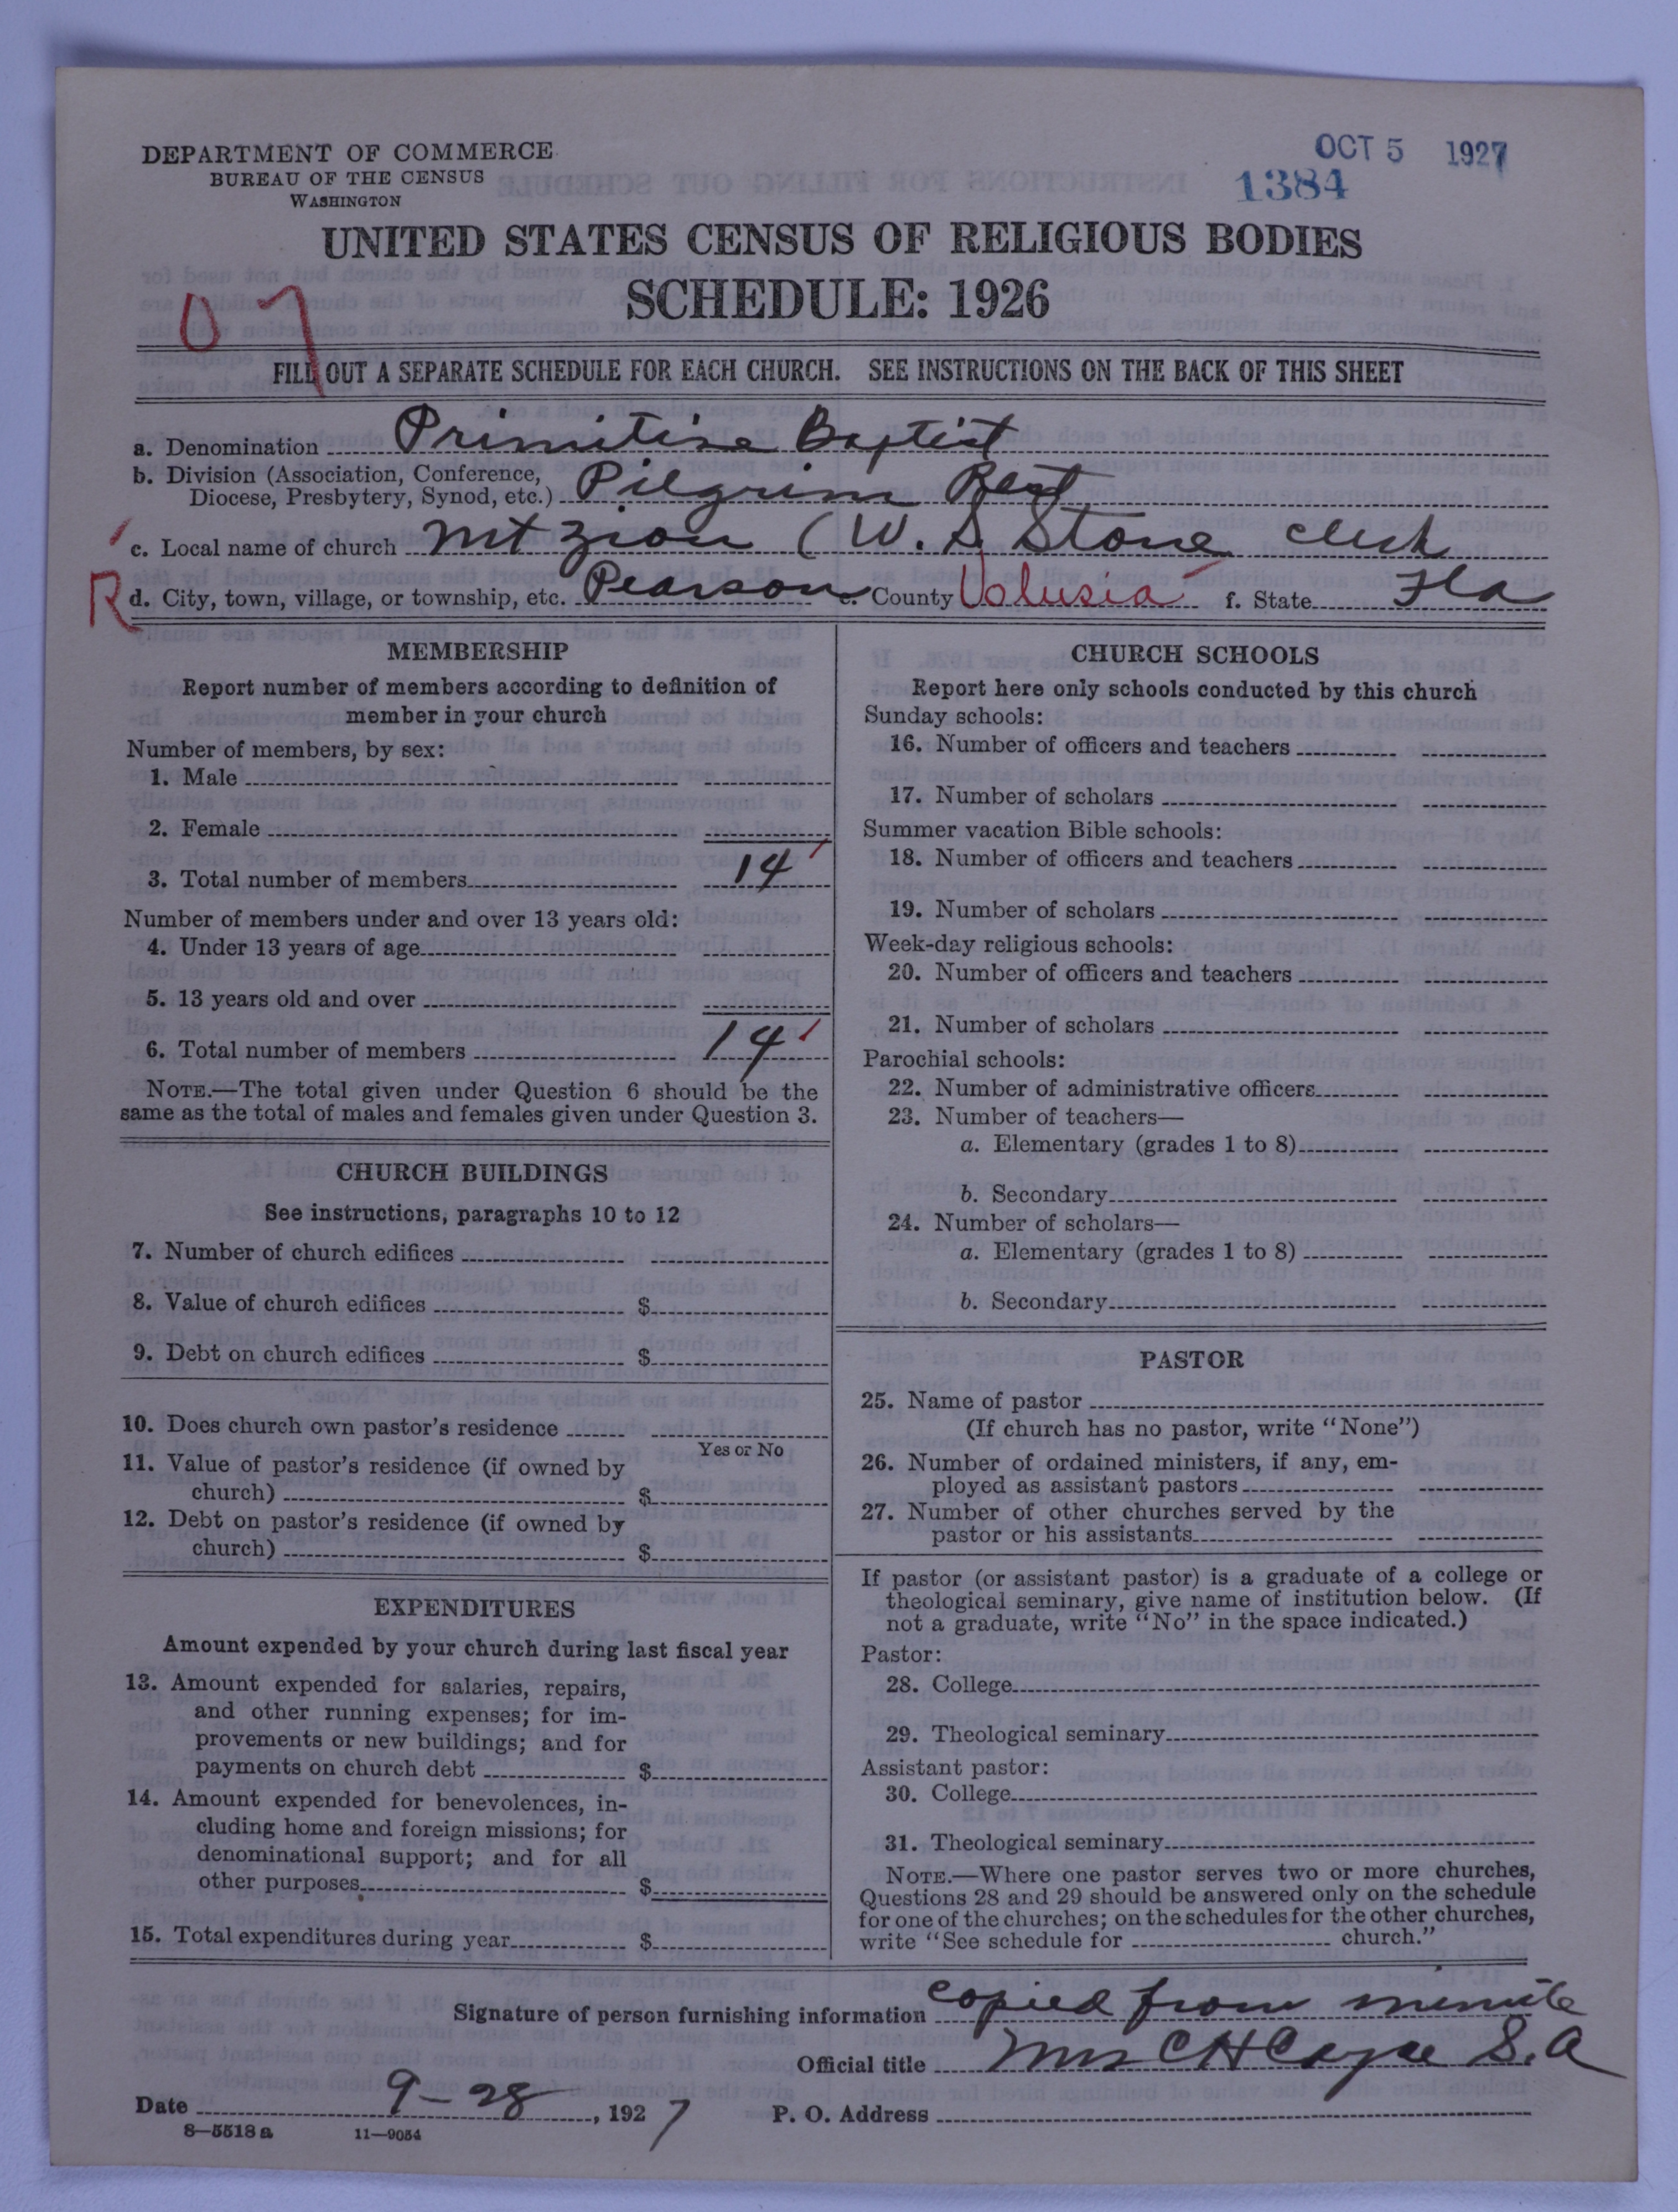 DEPARTMENT OF COMMERCE
BUREAU OF THE CENSUS
WASHINGTON
OCT 5 1927
1384
UNITED STATES CENSUS OF RELIGIOUS BODIES
SCHEDULE: 1926
07
FILL OUT A SEPARATE SCHEDULE FOR EACH CHURCH. SEE INSTRUCTIONS ON THE BACK OF THIS SHEET
a. Denomination Primitive Baptist
b. Division (Association, Conference,
Diocese, Presbytery, Synod, etc.) Pilgrim Rest
c. Local name of church Mt Zion (W. S Stone Clerk
R d. City, town, village, or township, etc. Pearson e. County Volusia f. State Fla
MEMBERSHIP
Report number of members according to definition of
member in your church
Number of members, by sex:
1. Male
2. Female
3. Total number of members 14
Number of members under and over 13 years old:
4. Under 13 years of age
5. 13 years old and over
6. Total number of members 14
NOTE.—The total given under Question 6 should be the
same as the total of males and females given under Question 3.
CHURCH BUILDINGS
See instructions, paragraphs 10 to 12
7. Number of church edifices
8. Value of church edifices $
9. Debt on church edifices $
10. Does church own pastor's residence
Yes or No
11. Value of pastor's residence (if owned by
church) $
12. Debt on pastor's residence (if owned by
church) $
EXPENDITURES
Amount expended by your church during last fiscal year
13. Amount expended for salaries, repairs,
and other running expenses; for im-
provements or new buildings; and for
payments on church debt $
14. Amount expended for benevolences, in-
cluding home and foreign missions; for
denominational support; and for all
other purposes $
15. Total expenditures during year $
CHURCH SCHOOLS
Report here only schools conducted by this church
Sunday schools:
16. Number of officers and teachers
17. Number of scholars
Summer vacation Bible schools:
18. Number of officers and teachers
19. Number of scholars
Week-day religious schools:
20. Number of officers and teachers
21. Number of scholars
Parochial schools:
22. Number of administrative officers
23. Number of teachers—
a. Elementary (grades 1 to 8)
b. Secondary
24. Number of scholars—
a. Elementary (grades 1 to 8)
b. Secondary
PASTOR
25. Name of pastor
(If church has no pastor, write "None")
26. Number of ordained ministers, if any, em-
ployed as assistant pastors
27. Number of other churches served by the
pastor or his assistants
If pastor (or assistant pastor) is a graduate of a college or
theological seminary, give name of institution below. (If
not a graduate, write "No" in the space indicated.)
Pastor:
28. College
29. Theological seminary
Assistant pastor:
30. College
31. Theological seminary
NOTE.—Where one pastor serves two or more churches,
Questions 28 and 29 should be answered only on the schedule
for one of the churches; on the schedules for the other churches,
write "See schedule for church."
Signature of person furnishing information copied from minute
Official title Mrs C H Cayce S. A
Date 9-28, 1927 P. O. Address
8—5518 a 11—9054